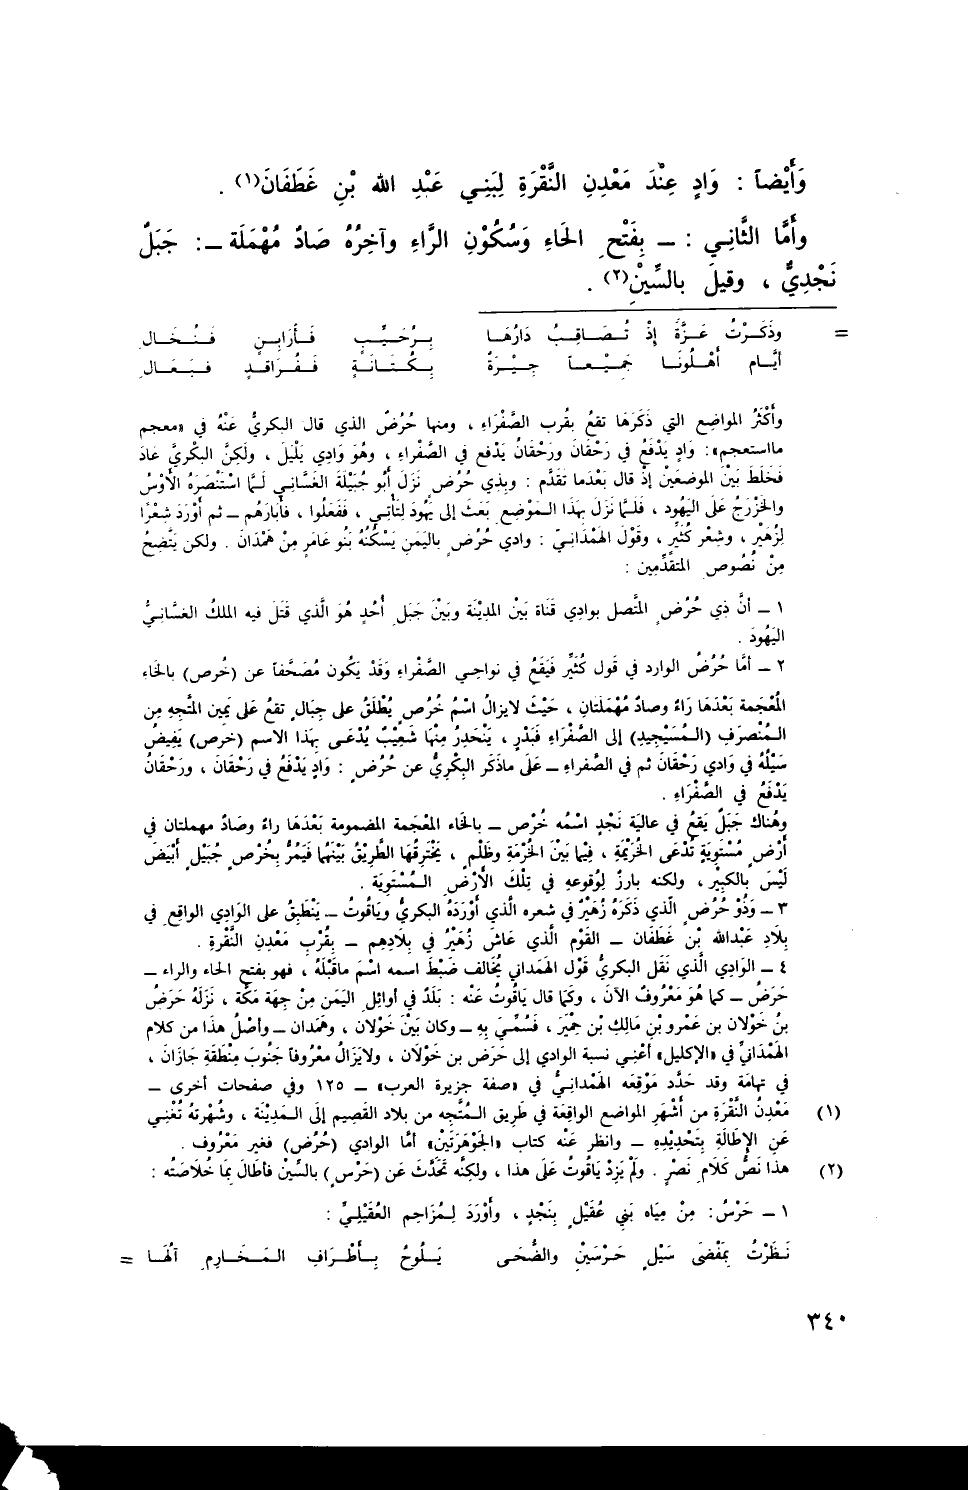 وَأَيْضاً : وَادٍ عِنْدَ مَعْدِنِ النَّقْرَةِ لِبَنِي عَبْدِ الله بْنِ غَطَفَانَ(١) .
وأَمَّا الثَّانِي : ــ بِفَتْحِ الحَاءِ وَسُكُوْنِ الرَّاءِ وآخِرُهُ صَادٌ مُهْمَلَة ــ: جَبَلٌ
نَجْدِيٌّ ، وقيلَ بالسِّيْنِ(٢) .
وذَكَرْتُ عَزَّةَ إِذْ تُصَاقِبُ دَارُهَا بِرُحَيِّبٍ فَأُرَابِنٍ فَنُخَالِ =
أَيَّامَ أَهْلُونَا جَمِيْعاً جِيْرَةٌ بِكُتَانَةٍ فَفُرَاقِدٍ فَبَعَالِ
وأَكْثَرُ المواضع التي ذَكَرَهَا تقعُ بقُرب الصَّفْرَاءِ ، ومنها حُرُضٌ الذي قال البكريُّ عَنْهُ في «معجم
مااستعجم»: وَادٍ يَدْفَعُ في رَحْقَانَ ورَحْقَانُ يَدْفع في الصَّفْراءِ ، وهُوَ وَادِي يَلْيَلَ ، ولكِنَّ البكْرِيَّ عَادَ
فَخَلَطَ بَيْنَ الموضعَيْنِ إذْ قال بَعْدَما تقَدَّم : وبِذِي حُرُضٍ نَزَلَ أَبُو جُبَيْلَةَ الغَسَّانِي لَمَّا اسْتَنْصَرَهُ الأَوْسُ
والخَزْرَجُ عَلَى اليَهُود ، فَلَمَّا نَزَلَ بهَذا الـمَوْضِعِ بَعَثَ إلى يَهُودَ لِتَأْتِيَ ، فَفَعَلُوا ، فأَبَارَهُم ــ ثم أَوْرَدَ شعْرًا
لِزُهَيْرٍ ، وشعْر كُثَيِّرٍ ، وقَوْلَ الهَمْدَانِيِّ : وادي حُرُضٍ باليَمنِ يَسْكُنُهُ بَنُو عَامرٍ مِنْ هَمْدَانَ . ولكن يَتَّضِحُ
مِنْ نُصُوصِ المتقدِّمين :
١ ــ أنَّ ذي حُرُضٍ المتَّصل بوادي قَنَاة بَيْنَ المدِيْنَة وبَيْنَ جَبَلِ أُحُدٍ هُوَ الَّذي قَتَلَ فيه الملكُ الغسَّانيُّ
اليَهُودَ .
٢ ــ أمَّا حُرُضُ الوارد في قول كُثَيِّر فيَقَعُ في نواحي الصَّفْراءِ وَقَدْ يَكُون مُصَحَّفاً عن (خُرص) بالخَاء
المُعْجَمة بَعْدَهَا رَاءٌ وصادٌ مُهْمَلَتَانِ ، حَيْثُ لايزالُ اسْمُ خُرُصٍ يُطْلَقُ على جِبَالٍ تقعُ عَلى يَمين المتَّجه مِن
الـمُنْصرَفِ (الـمُسَيْجِيد) إلى الصَّفْراءِ فَبَدْرٍ ، يَنْحَدِرُ مِنْهَا شعِيْبٌ يُدْعَى بِهَذا الاسم (خرص) يَفِيضُ
سَيْلُهُ في وَادي رَحْقَان ثم في الصَّفْراءِ ــ عَلَى ماذَكَر البكْرِيُّ عن حُرُضٍ : وَادٍ يَدْفَعُ في رَحْقَانَ ، ورَحْقَانُ
يَدْفَعُ في الصَّفْرَاءِ .
وهُناك جَبَلٌ يَقعُ في عَالِيَة نَجْدٍ اسْمُه خُرْص ــ بالخَاء المُعْجَمة المضمومة بَعْدَهَا راءٌ وصَادٌ مهملتان في
أَرْضٍ مُسْتَوِيَةٍ تُدْعَى الخُرَيْمَةَ ، فِيْمَا بَيْنَ الخُرْمَةِ وظَلْمٍ ، يَخْتَرِقُهَا الطَّرِيْقُ بَيْنَهُمَا فَيَمُرُّ بِخُرْصٍ جُبَيْلٍ أَبْيَضَ
لَيْسَ بالكَبِيْرِ ، ولكنه بارزٌ لِوُقوعهِ في تِلْكَ الأَرْضِ الـمُسْتَوِيَة .
٣ ــ وَذُوْ حُرُضٍ الَّذي ذَكَرَهُ زُهَيْرٌ في شعره الَّذي أَوْرَدَهُ البكريُّ ويَاقُوتُ ــ يَنْطَبِقُ على الوَادِي الواقع في
بِلَادِ عَبْدالله بْنِ غَطَفَان ــ القَوْم الَّذي عَاشَ زُهَيْرٌ في بِلَادِهِم ــ بِقُرْبِ مَعْدِنِ النَّقْرَةِ .
٤ ــ الوَادِي الَّذي نَقَلَ البكريُّ قَوْلَ الهَمْداني يُخَالف ضَبْطَ اسمه اسْمَ ماقَبْلَهُ ، فهو بفتح الحاء والراء ــ
حَرَضٌ ــ كما هُوَ مَعْرُوفٌ الآن ، وكَما قال يَاقُوتُ عَنْه : بَلَدٌ في أوائِلِ اليَمن مِنْ جِهَةِ مَكَّةَ ، نَزَلَهُ حَرَضُ
بنُ خَوْلَان بن عَمْرِو بْنِ مَالِكِ بْن حِمْيَرَ ، فَسُمِّيَ بِهِ ــ وكان بَيْنَ خَوْلان ، وهَمْدان ــ وأصْلُ هذا من كلام
الهَمْدَانيِّ في «الإكليل» أعْنِي نسبة الوادي إلى حَرَض بن خَوْلَان ، ولايَزَالُ مَعْرُوفاً جَنُوبَ مِنْطَقَةِ جَازَانَ ،
في تِهَامَة وقد حَدَّد مَوْقِعَه الهَمْدَانيُّ في «صفة جزيرة العرب» ــ ١٢٥ وفي صفحات أخرى ــ
(١) مَعْدِنُ النَّقْرَةِ من أَشْهَرِ المواضع الواقِعَة في طَرِيق الـمُتَّجِه من بلاد القصِيم إلَى الـمَدِيْنَة ، وشُهْرتهُ تُغْنِي
عَنِ الإِطَالَةِ بِتَحْدِيْدِهِ ــ وانظر عَنْه كتاب «الجَوْهَرَتَيْنِ» أمَّا الوادي (حُرُض) فغير مَعْرُوف .
(٢) هذا نَصُّ كَلَامِ نَصْرٍ . ولَمْ يَزِدْ يَاقُوتُ عَلَى هذا ، ولكِنَّه تَحَدَّثَ عَن (حَرْسٍ) بالسِّيْنِ فأطَالَ بِمَا خُلَاصَتُه :
١ ــ حَرْسٌ: مِنْ مِيَاه بَنِي عُقَيْلٍ بِنَجْدٍ ، وأَوْرَدَ لِـمُزَاحِمِ العُقَيْلِيِّ :
نَظَرْتُ بِمَفْضَى سَيْلِ حَرْسَيْنِ والضُّحَى يَلُوحُ بِأَطْرَافِ الـمَخَارِمِ آلُهَا =
٣٤٠